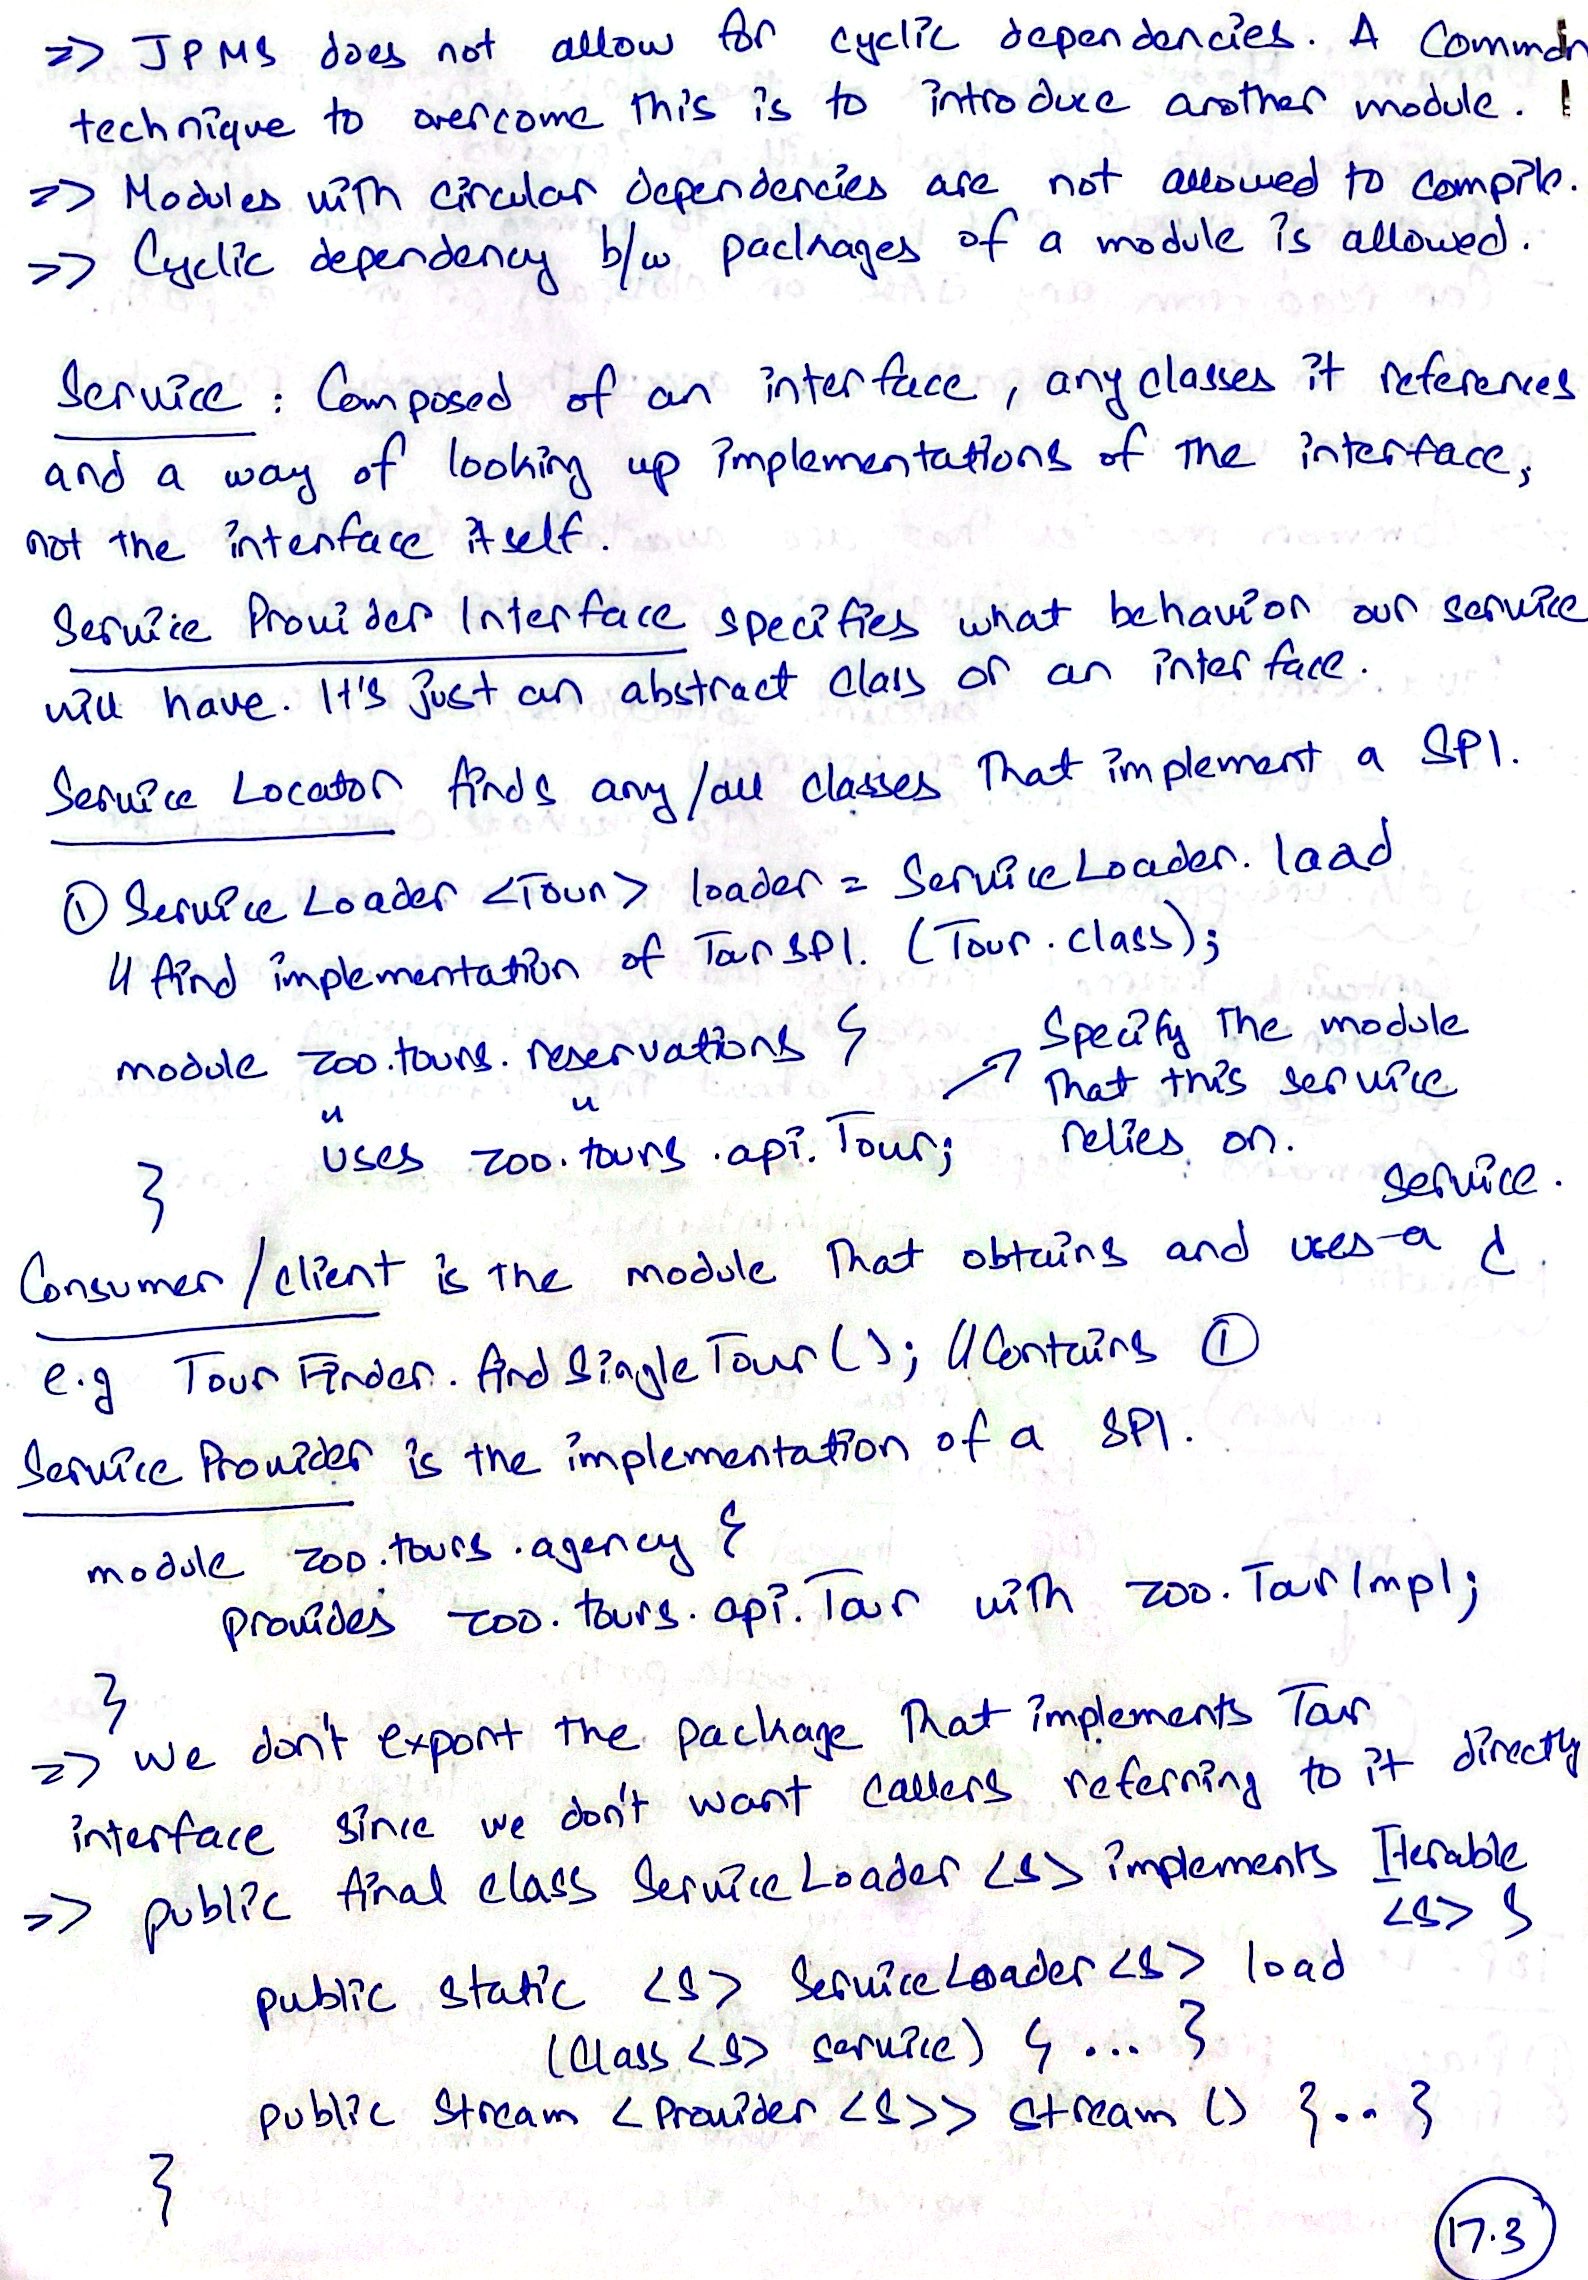 => JPMS does not allow for cyclic dependencies. A Common
technique to overcome this is to introduce another module.
=> Modules with circular dependencies are not allowed to compile.
=> Cyclic dependency b/w packages of a module is allowed.
Service : Composed of an interface, any classes it references
and a way of looking up implementations of the interface,
not the interface itself.
Service Provider Interface specifies what behavior our service
will have. It's just an abstract class or an interface.
Service Locator finds any/all classes that implement a SPI.
① ServiceLoader <Tour> loader = ServiceLoader. load
// find implementation of Tour SPI. (Tour.class);
module zoo.tours.reservations {
Specify the module
that this service
relies on.
" "
uses zoo.tours.api.Tour;
}
service.
Consumer/client is the module that obtains and uses a
e.g TourFinder.findSingleTour(); //Contains ①
Service Provider is the implementation of a SPI.
module zoo.tours.agency {
provides zoo.tours.api.Tour with zoo.TourImpl;
}
=> we don't export the package that implements Tour
interface since we don't want callers referring to it directly
=> public final class ServiceLoader <S> implements Iterable
<S> {
public static <S> ServiceLoader<S> load
(Class<S> service) { ... }
public Stream <Provider <S>> stream () {...}
}
17.3